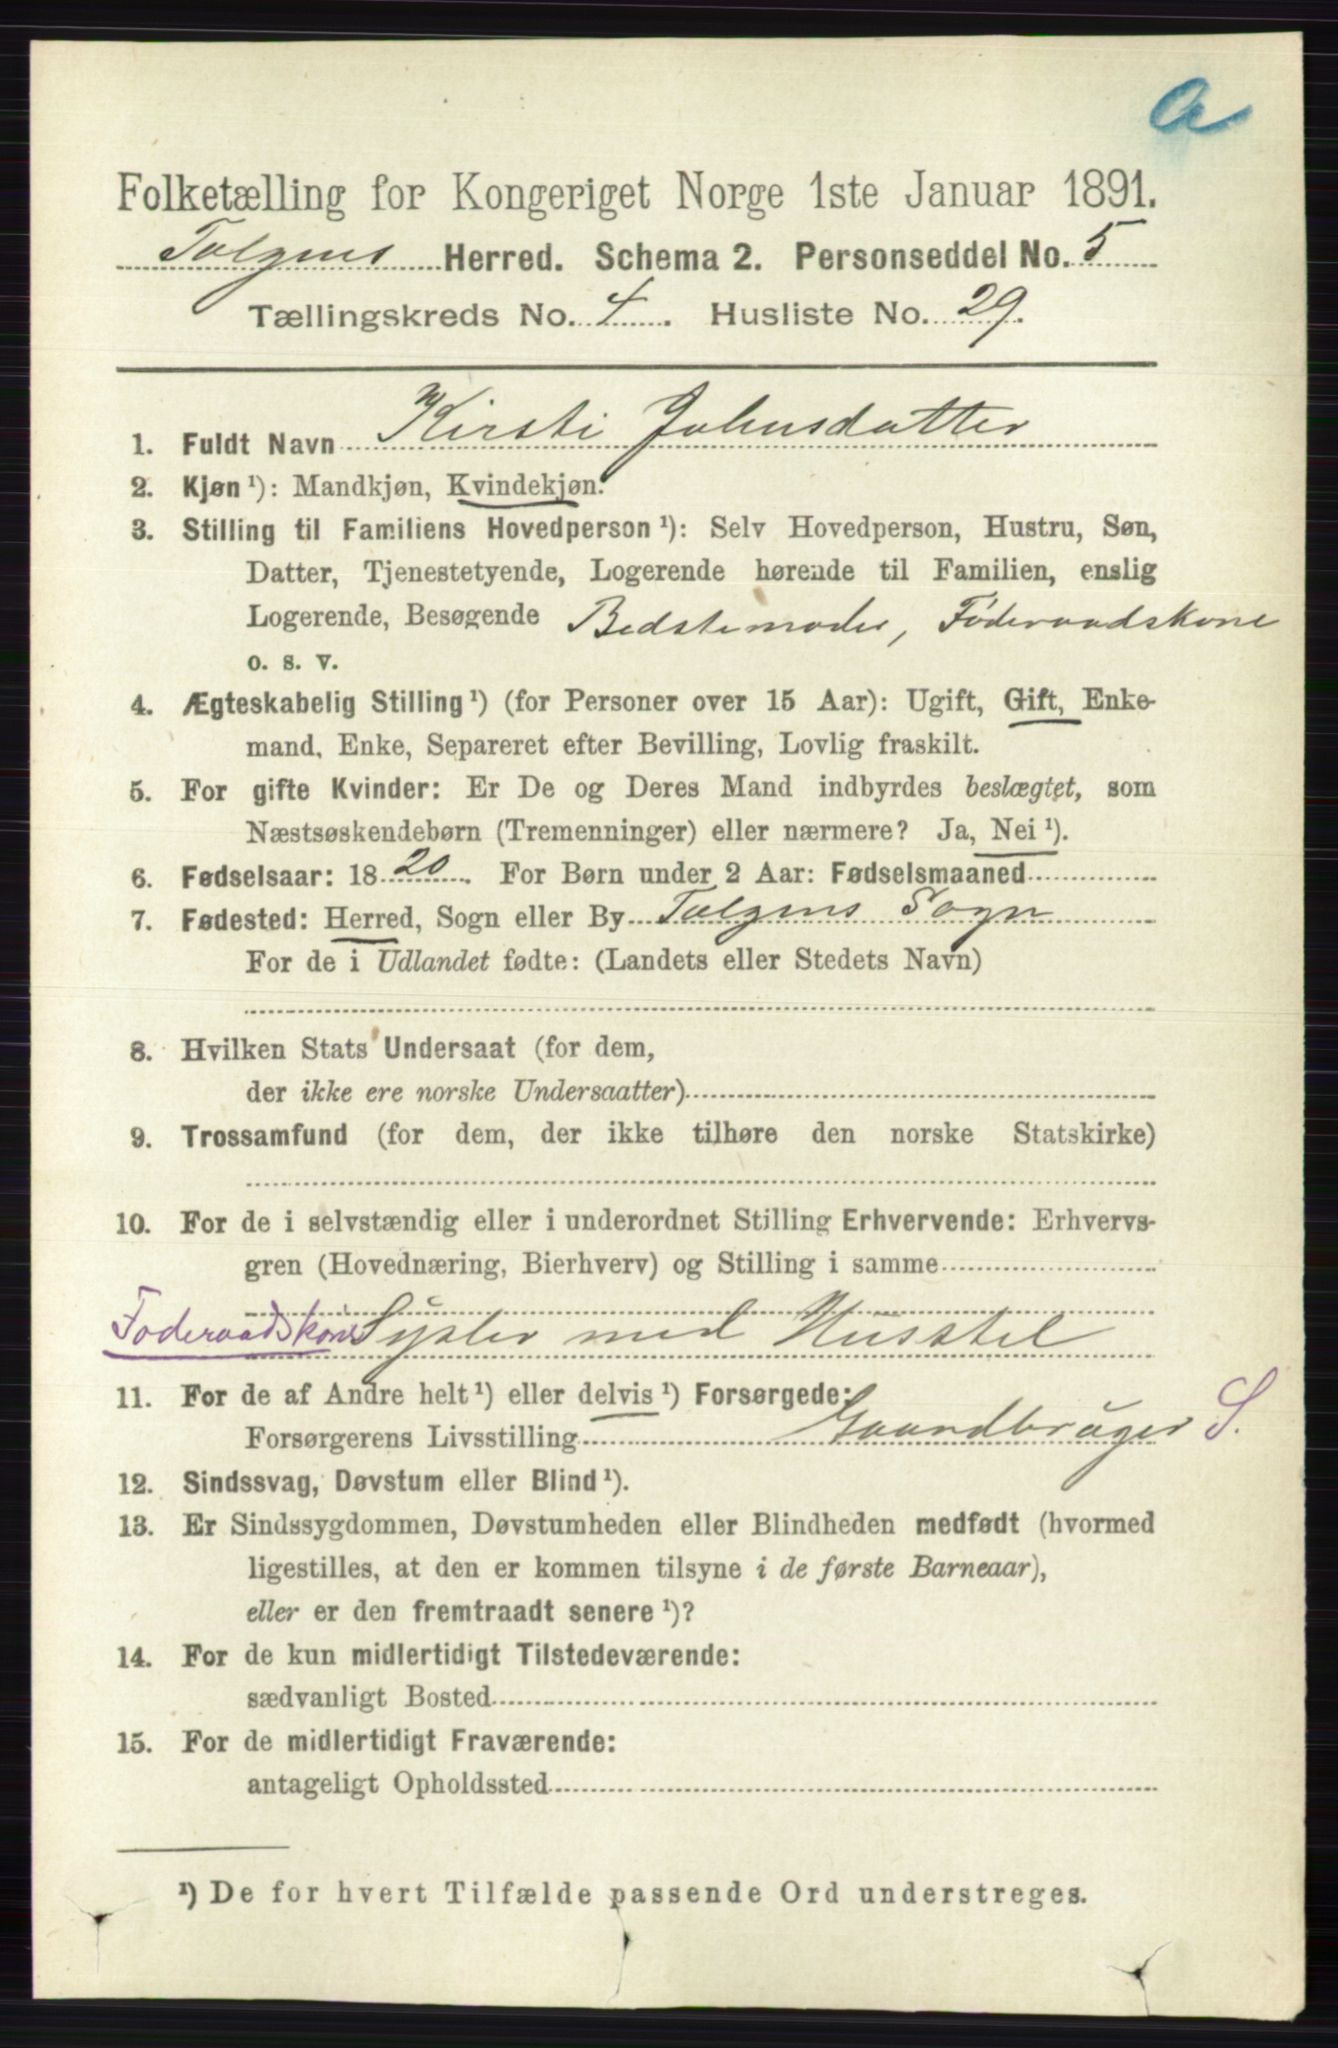 a
Folketælling for Kongeriget Norge 1ste Januar 1891.
Tolgens Herred. Schema 2. Personseddel No. 5
Tællingskreds No. 4. Husliste No. 29.
1. Fuldt Navn Kirsti Johnsdatter
2. Kjøn ¹): Mandkjøn, Kvindekjøn.
3. Stilling til Familiens Hovedperson ¹): Selv Hovedperson, Hustru, Søn,
Datter, Tjenestetyende, Logerende hørende til Familien, enslig
Logerende, Besøgende Bedstemoder, Föderaadskone
o. s. v.
4. Ægteskabelig Stilling ¹) (for Personer over 15 Aar): Ugift, Gift, Enke-
mand, Enke, Separeret efter Bevilling, Lovlig fraskilt.
5. For gifte Kvinder: Er De og Deres Mand indbyrdes beslægtet, som
Næstsøskendebørn (Tremenninger) eller nærmere? Ja, Nei ¹).
6. Fødselsaar: 1820. For Børn under 2 Aar: Fødselsmaaned
7. Fødested: Herred, Sogn eller By Tolgens Sogn
For de i Udlandet fødte: (Landets eller Stedets Navn)
8. Hvilken Stats Undersaat (for dem,
der ikke ere norske Undersaatter)
9. Trossamfund (for dem, der ikke tilhøre den norske Statskirke)
10. For de i selvstændig eller i underordnet Stilling Erhvervende: Erhvervs-
gren (Hovednæring, Bierhverv) og Stilling i samme
Foderaadskone Sysler med Husstel
11. For de af Andre helt ¹) eller delvis ¹) Forsørgede:
Forsørgerens Livsstilling Gaardbrüger S.
12. Sindssvag, Døvstum eller Blind ¹).
13. Er Sindssygdommen, Døvstumheden eller Blindheden medfødt (hvormed
ligestilles, at den er kommen tilsyne i de første Barneaar),
eller er den fremtraadt senere ¹)?
14. For de kun midlertidigt Tilstedeværende:
sædvanligt Bosted
15. For de midlertidigt Fraværende:
antageligt Opholdssted
¹) De for hvert Tilfælde passende Ord understreges.